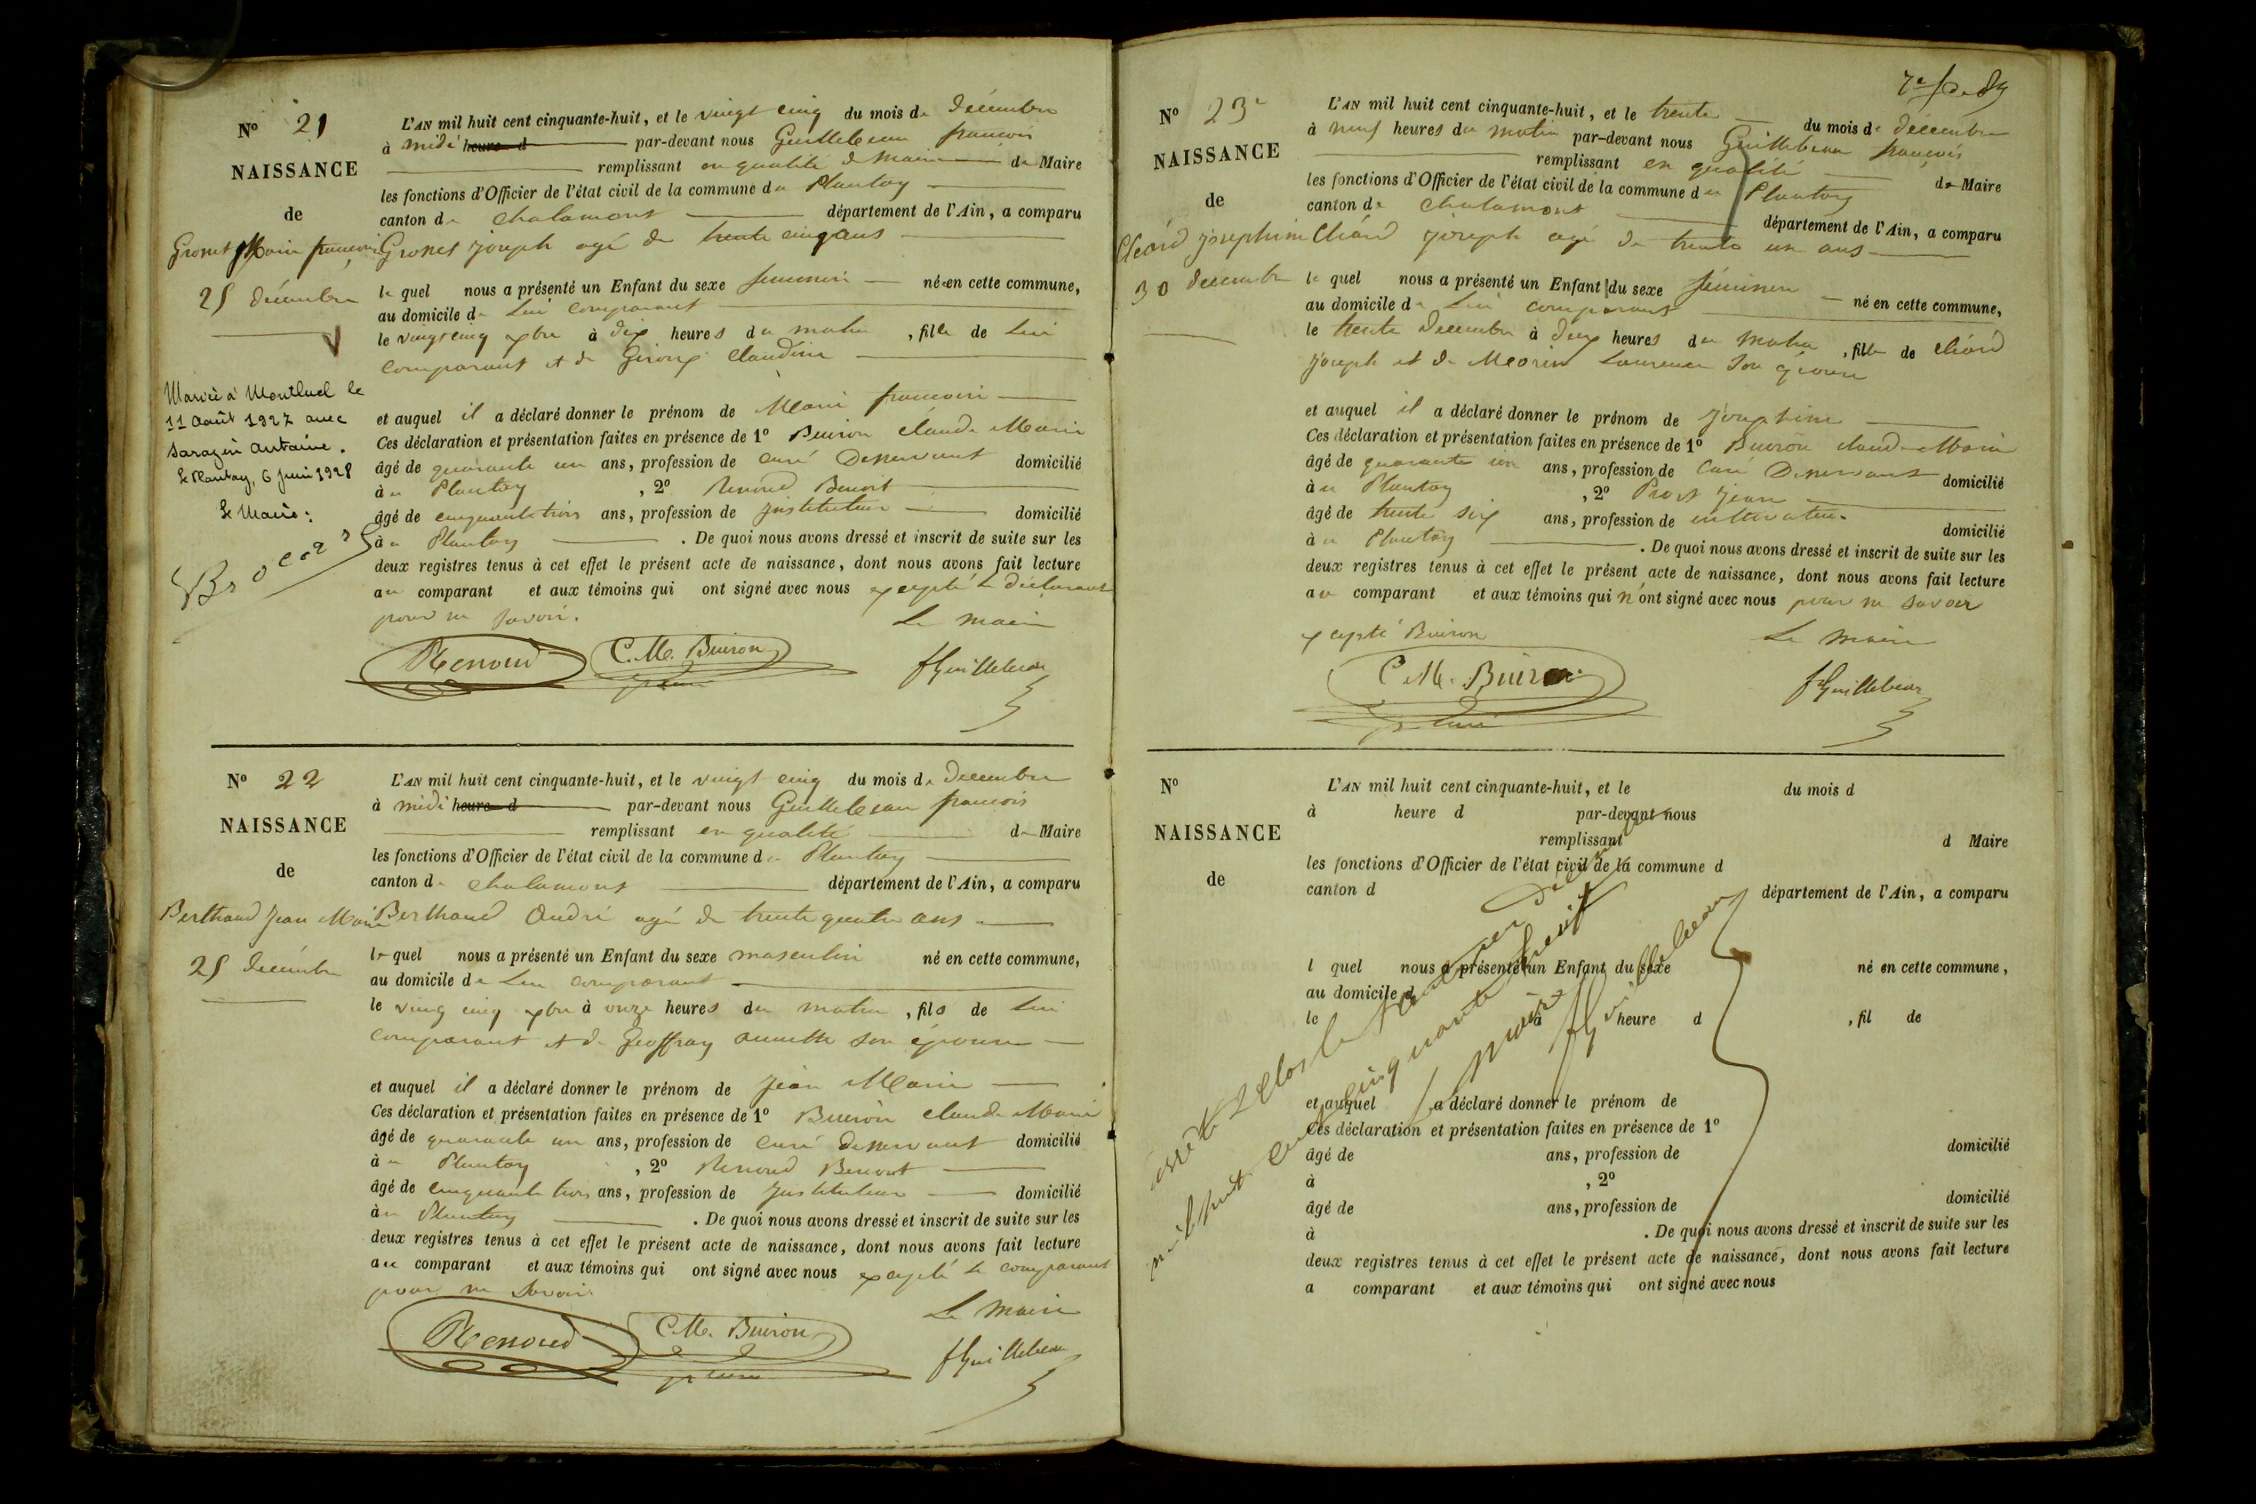 N° 21
NAISSANCE
de
Gronet Marie françoise
25 décembre
Mariée à Montluel le
11 Août 1927 avec
Sarazin Antoine.
Le Plantay, 6 Juin 1928
Le Maire:
L'AN mil huit cent cinquante-huit, et le vingt cinq du mois de décembre
à midi heure d par-devant nous Guillebeau françois
remplissant en qualité de maire de Maire
les fonctions d'Officier de l'état civil de la commune du Plantay
canton de chalamont département de l'Ain, a comparu
Gronet joseph agé de trente cinq ans
le quel nous a présenté un Enfant du sexe féminin né en cette commune,
au domicile de Lui comparant
le vingt cinq xbre à dix heures du matin, fille de Lui
comparant et de Giroux Claudine
et auquel il a déclaré donner le prénom de Marie françoise
Ces déclaration et présentation faites en présence de 1° Buiron Claude Marie
âgé de quarante un ans, profession de curé Desservant domicilié
à u Plantay, 2° Renoud Benoit
âgé de cinquante trois ans, profession de instituteur domicilié
à u Plantay. De quoi nous avons dressé et inscrit de suite sur les
deux registres tenus à cet effet le présent acte de naissance, dont nous avons fait lecture
au comparant et aux témoins qui ont signé avec nous excepté le déclarant
pour ne savoir. Le maire
Renoud C. M. Buiron fGuillebeau
N° 22
NAISSANCE
de
Berthaud Jean Marie
25 décembre
L'AN mil huit cent cinquante-huit, et le vingt cinq du mois de décembre
à midi heure d par-devant nous Guillebeau françois
remplissant en qualité de Maire
les fonctions d'Officier de l'état civil de la commune du Plantay
canton de chalamont département de l'Ain, a comparu
Berthaud André agé de trente quatre ans
le quel nous a présenté un Enfant du sexe masculin né en cette commune,
au domicile de Lui comparant
le ving cinq xbre à onze heures du matin, fils de Lui
comparant et de Geoffray annette son épouse
et auquel il a déclaré donner le prénom de Jean Marie
Ces déclaration et présentation faites en présence de 1° Buiron Claude Marie
âgé de quarante un ans, profession de curé desservant domicilié
à u Plantay, 2° Renoud Benoit
âgé de cinquante trois ans, profession de Instituteur domicilié
à u Plantay. De quoi nous avons dressé et inscrit de suite sur les
deux registres tenus à cet effet le présent acte de naissance, dont nous avons fait lecture
au comparant et aux témoins qui ont signé avec nous excepté le comparant
pour ne savoir. Le maire
Renoud C. M. Buiron fGuillebeau
N° 23
NAISSANCE
de
Cléard josephine
30 décembre
L'AN mil huit cent cinquante-huit, et le trente du mois de décembre
à neuf heures du matin par-devant nous Guillebeau françois
remplissant en qualité de Maire
les fonctions d'Officier de l'état civil de la commune du Plantay
canton de chalamont département de l'Ain, a comparu
joseph agé de trente un ans
le quel nous a présenté un Enfant du sexe féminin né en cette commune,
au domicile de Lui comparant
le trente Décembre à deux heures du matin, fille de
joseph et de Morin Laurence son épouse
et auquel il a déclaré donner le prénom de Josephine
Ces déclaration et présentation faites en présence de 1° Buiron claude Marie
âgé de quarante un ans, profession de Curé Desservant domicilié
à u Plantay, 2° Prost Jean
âgé de trente six ans, profession de cultivateur domicilié
à u Plantay. De quoi nous avons dressé et inscrit de suite sur les
deux registres tenus à cet effet le présent acte de naissance, dont nous avons fait lecture
au comparant et aux témoins qui n'ont signé avec nous pour ne savoir
excepté Buiron Le maire
C. M. Buiron fGuillebeau
N°
NAISSANCE
de
L'AN mil huit cent cinquante-huit, et le du mois d
à heure d par-devant nous
remplissant d Maire
les fonctions d'Officier de l'état civil de la commune d
canton d département de l'Ain, a comparu
l quel nous a présenté un Enfant du sexe né en cette commune,
au domicile d
le à heure d, fil de
et auquel a déclaré donner le prénom de
Ces déclaration et présentation faites en présence de 1°
âgé de ans, profession de domicilié
à, 2°
âgé de ans, profession de domicilié
à. De quoi nous avons dressé et inscrit de suite sur les
deux registres tenus à cet effet le présent acte de naissance, dont nous avons fait lecture
a comparant et aux témoins qui ont signé avec nous
arrêté et clos le trente un Décembre
mil huit cent cinquante huit
Le maire fGuillebeau